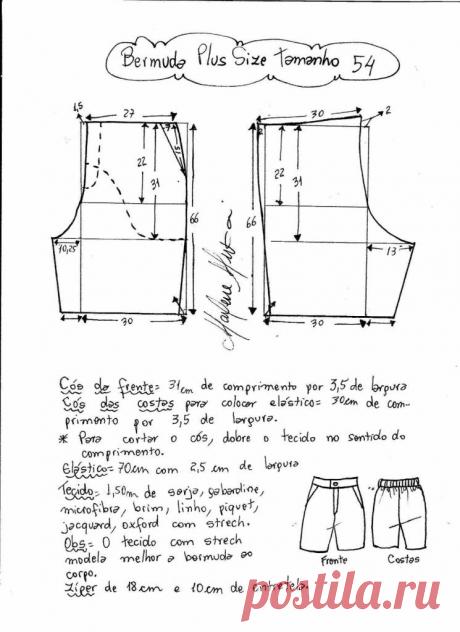 Bermuda Plus Size Tamanho 54
1,5
27
3
15
22
31
66
10,25
30
30
2
2
22
31
66
13
30
Marlene Mukai
Cós da frente = 31cm de comprimento por 3,5 de largura
Cós das costas para colocar elástico = 30cm de com-
primento por 3,5 de largura.
* Para cortar o cós, dobre o tecido no sentido do
comprimento.
Elástico = 70cm com 2,5 cm de largura
Tecido = 1,50m de sarja, gabardine,
microfibra, brim, linho, piquet,
jacquard, oxford com strech.
Obs = O tecido com strech
modela melhor a bermuda ao
corpo.
Zíper de 18cm e 10cm de entretela.
Frente
Costas
postila.ru